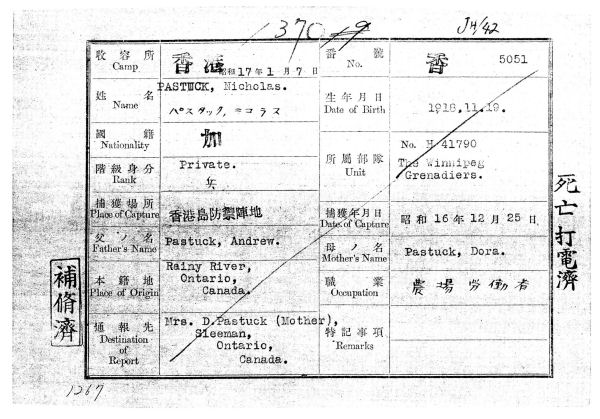 1370
J4/42
收容所
Camp
香港
昭和17年1月7日
番號
No.
香
5051
姓名
Name
PASTUCK, Nicholas.
パスタック, ニコラス
生年月日
Date of Birth
1918.11.19.
國籍
Nationality
加
階級身分
Rank
Private.
兵
所屬部隊
Unit
No. H 41790
The Winnipeg
Grenadiers.
捕獲場所
Place of Capture
香港島防禦陣地
捕獲年月日
Date of Capture
昭和16年12月25日
父ノ名
Father's Name
Pastuck, Andrew.
母ノ名
Mother's Name
Pastuck, Dora.
本籍地
Place of Origin
Rainy River,
Ontario,
Canada.
職業
Occupation
農場労働者
通報先
Destination
of
Report
Mrs. D.Pastuck (Mother),
Sleeman,
Ontario,
Canada.
特記事項
Remarks
死亡打電濟
補脩濟
1267